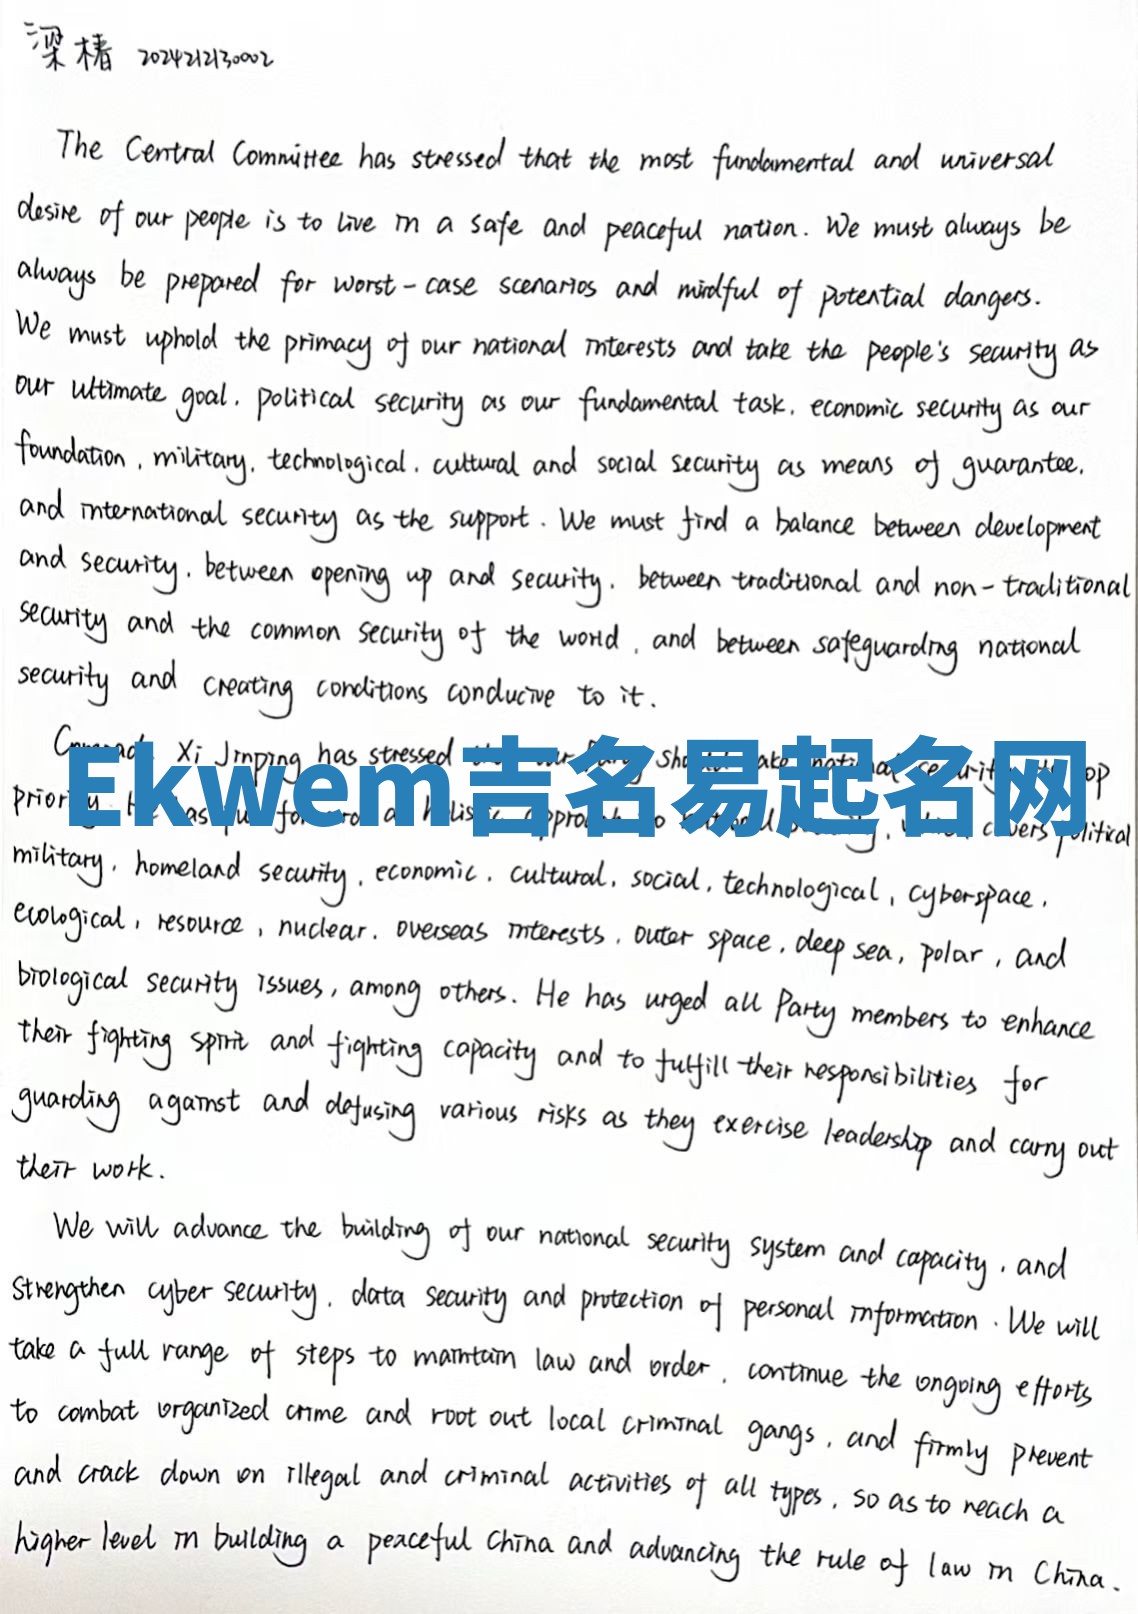 梁椿 2024212130002
The Central Committee has stressed that the most fundamental and universal
desire of our people is to live in a safe and peaceful nation. We must always be
always be prepared for worst-case scenarios and mindful of potential dangers.
We must uphold the primacy of our national interests and take the people's security as
our ultimate goal, political security as our fundamental task, economic security as our
foundation, military, technological, cultural and social security as means of guarantee,
and international security as the support. We must find a balance between development
and security, between opening up and security, between traditional and non-traditional
security and the common security of the world, and between safeguarding national
security and creating conditions conducive to it.
Xi Jinping has stressed
Ekwem吉名易起名网
political
military, homeland security, economic, cultural, social, technological, cyberspace,
ecological, resource, nuclear, overseas interests, outer space, deep sea, polar, and
biological security issues, among others. He has urged all Party members to enhance
their fighting spirit and fighting capacity and to fulfill their responsibilities for
guarding against and defusing various risks as they exercise leadership and carry out
their work.
We will advance the building of our national security system and capacity, and
strengthen cyber security, data security and protection of personal information. We will
take a full range of steps to maintain law and order, continue the ongoing efforts
to combat organized crime and root out local criminal gangs, and firmly prevent
and crack down on illegal and criminal activities of all types, so as to reach a
higher level in building a peaceful China and advancing the rule of law in China.